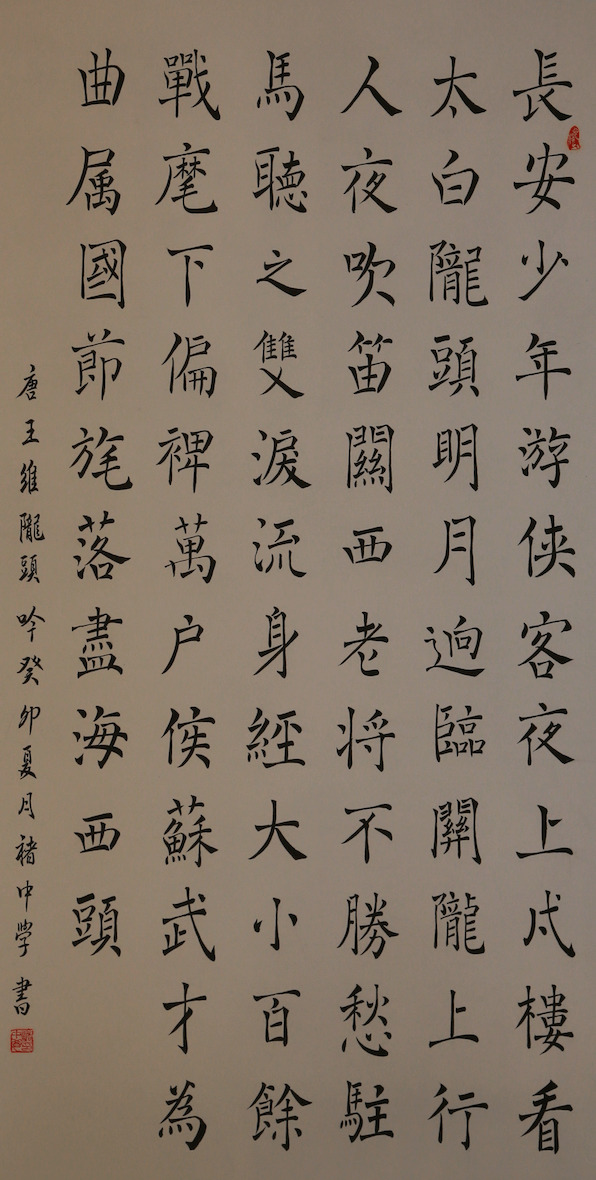 長安少年游侠客夜上戍樓看
太白隴頭明月逈臨關隴上行
人夜吹笛關西老将不勝愁駐
馬聽之雙淚流身經大小百餘
戰麾下偏裨萬户侯蘇武才為
曲属國節旄落盡海西頭
唐王維隴頭吟癸卯夏月褚中学書